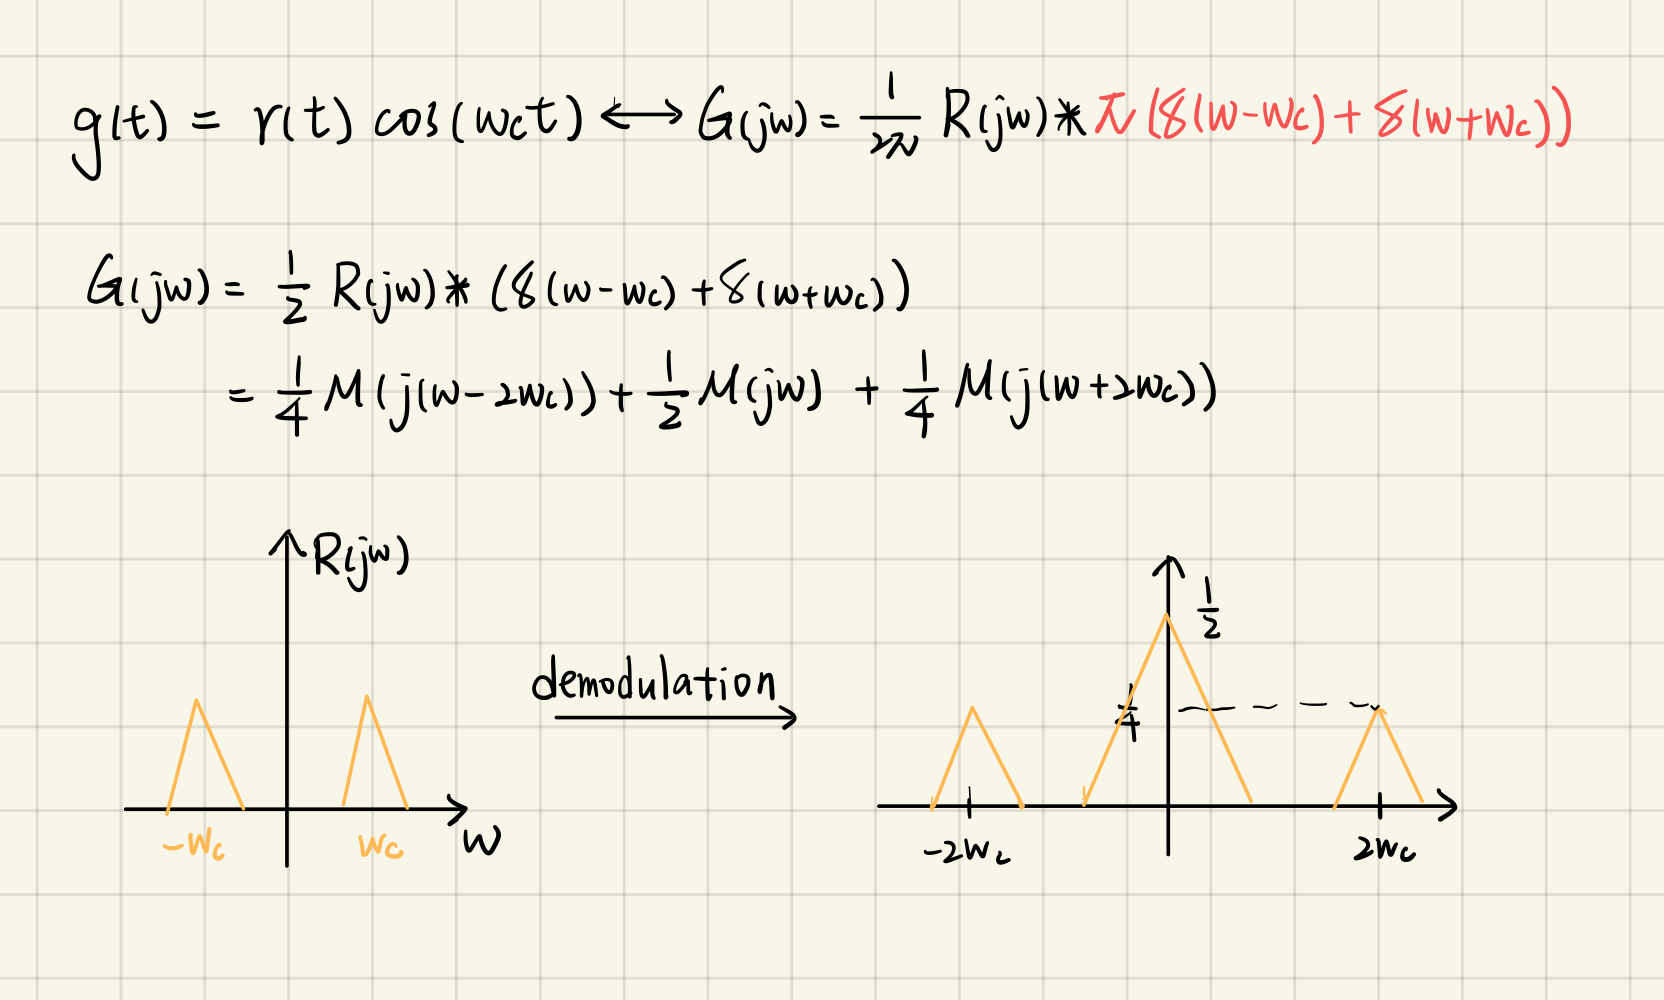 g(t) = r(t) cos(wct) ⟷ G(jw) = 1/2π R(jw) * π(δ(w-wc) + δ(w+wc))
G(jw) = 1/2 R(jw) * (δ(w-wc) + δ(w+wc))
= 1/4 M(j(w-2wc)) + 1/2 M(jw) + 1/4 M(j(w+2wc))
R(jw)
1/2
demodulation
1/4
-wc wc w
-2wc 2wc